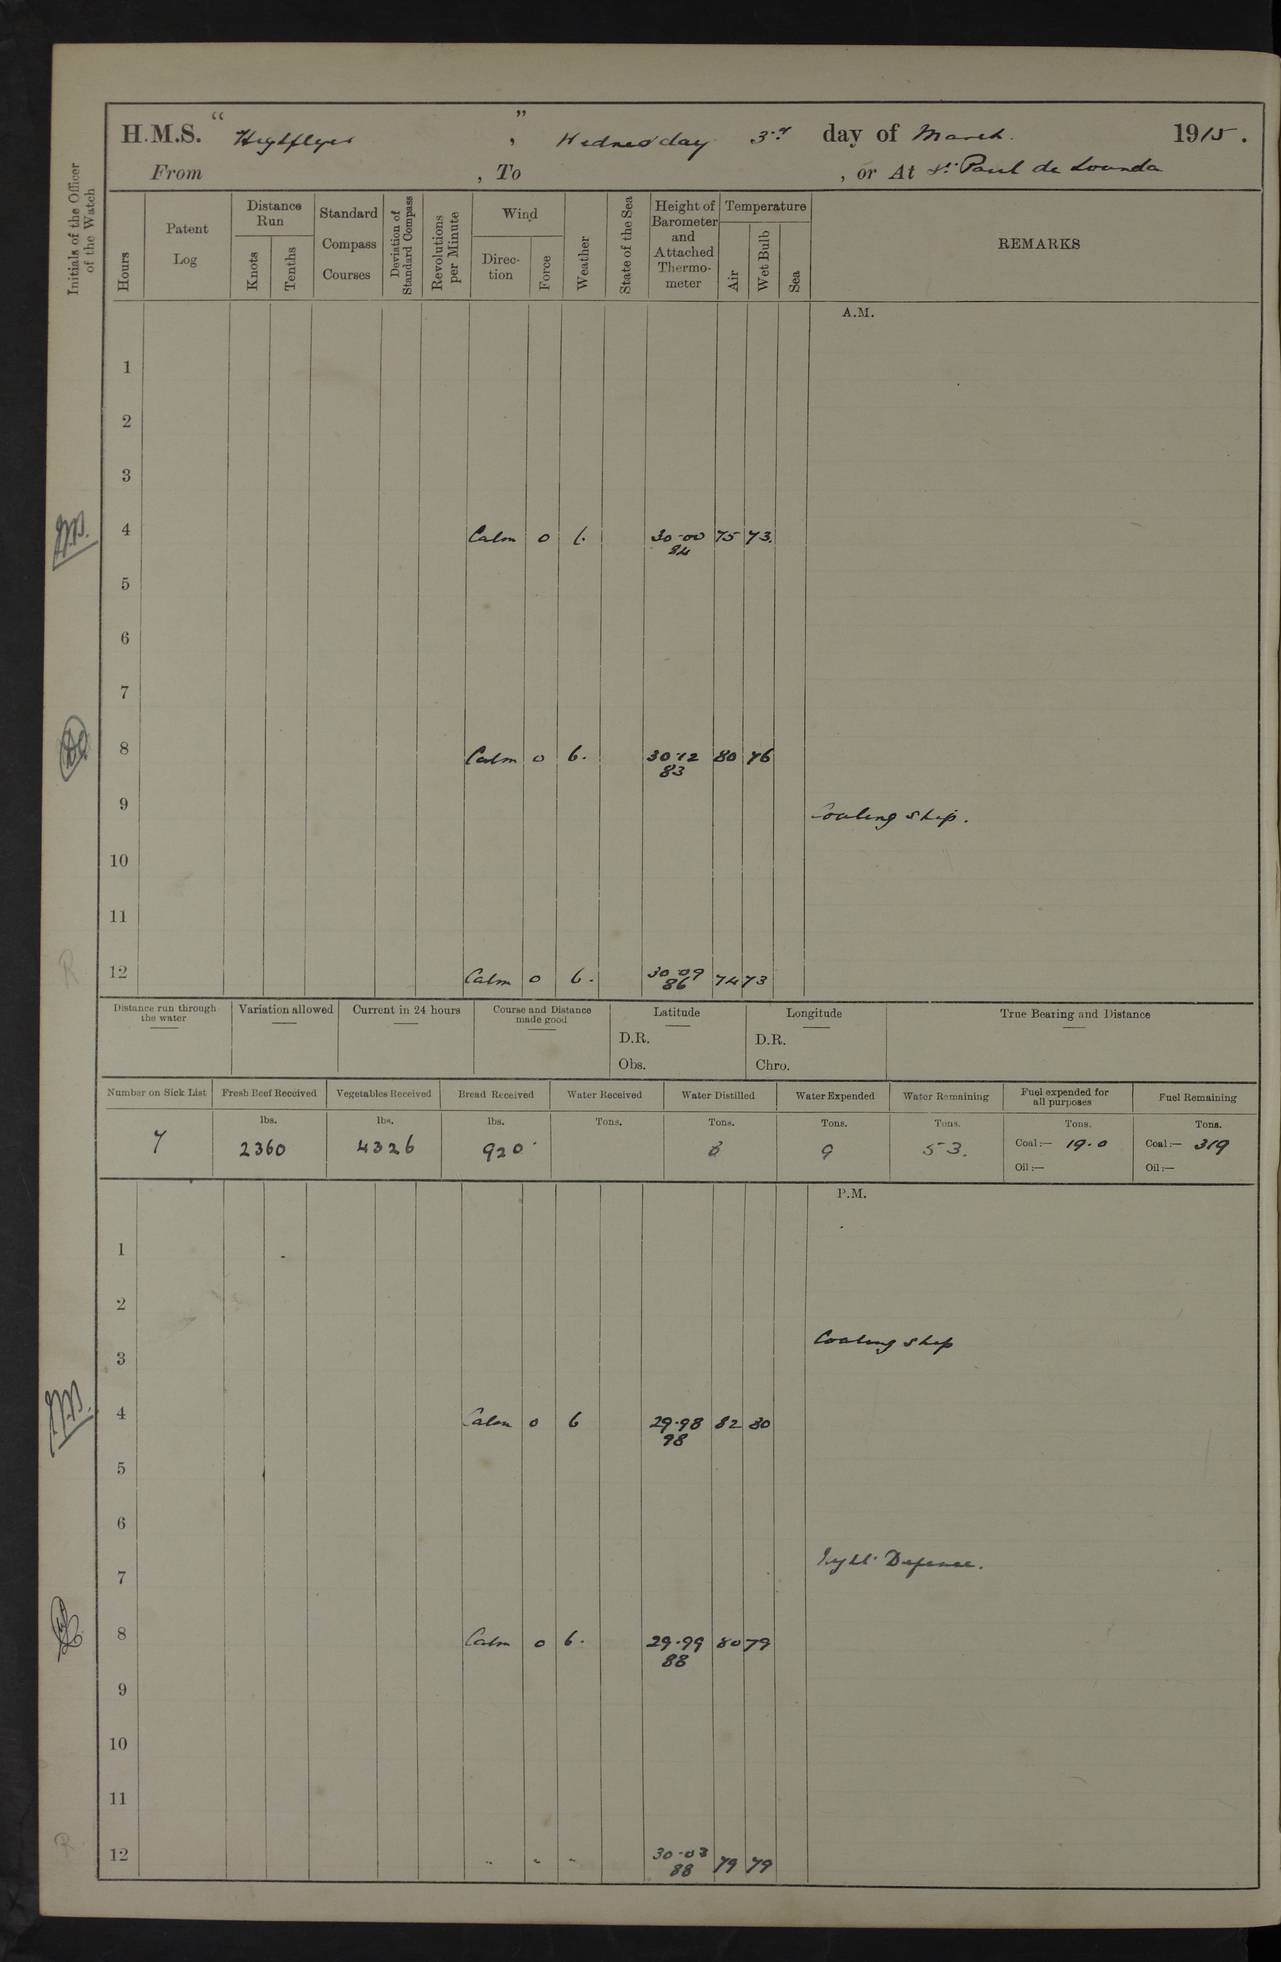 H.M.S. "Highflyer", Wednesday 3rd day of March 1915.
From , To , or At St Paul de Loanda
Initials of the Officer of the Watch
Hours
Patent Log
Distance Run
Knots
Tenths
Standard Compass Courses
Deviation of Standard Compass
Revolutions per Minute
Wind
Direction
Force
Weather
State of the Sea
Height of Barometer and Attached Thermometer
Temperature
Air
Wet Bulb
Sea
REMARKS
A.M.
1
2
3
4 Calm 0 b. 30.00 75 73.
84
5
6
7
8 Calm 0 b. 30.12 80 76
83
9 Coaling ship.
10
11
12 Calm 0 b. 30.09 74 73
86
Distance run through the water
Variation allowed
Current in 24 hours
Course and Distance made good
Latitude
D.R.
Obs.
Longitude
D.R.
Chro.
True Bearing and Distance
Number on Sick List Fresh Beef Received Vegetables Received Bread Received Water Received Water Distilled Water Expended Water Remaining Fuel expended for all purposes Fuel Remaining
lbs. lbs. lbs. Tons. Tons. Tons. Tons. Tons. Tons.
7 2360 4326 920 9 53. Coal:— 19.0 Coal:— 319
Oil:— Oil:—
P.M.
1
2
Coaling ship
3
4 Calm 0 b 29.98 82 80
98
5
6
Night Defence.
7
8 Calm 0 b. 29.99 80 79
88
9
10
11
12 " " " 30.03 79 79
88